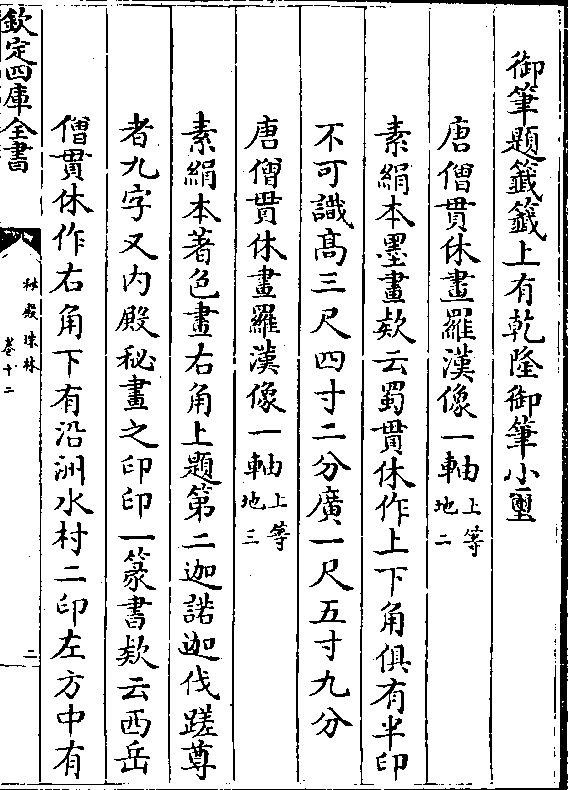 御筆題籤籤上有乾隆御筆小璽
唐僧貫休畫羅漢像一軸上等地二
素絹本墨畫欵云蜀貫休作上下角俱有半印
不可識髙三尺四寸二分廣一尺五寸九分
唐僧貫休畫羅漢像一軸上等地三
素絹本著色畫右角上題第二迦諾迦伐蹉尊
者九字又内殿秘畫之印印一篆書欵云西岳
僧貫休作右角下有沿洲水村二印左方中有
欽定四庫全書
秘殿珠林
卷十二
二